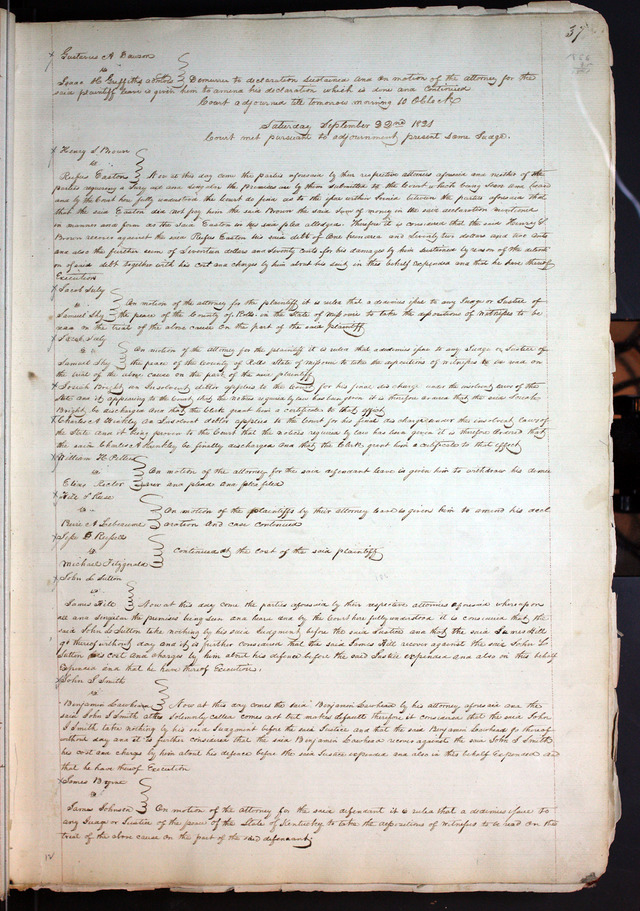 37
Gustavus A Bauson
vs
Isaac H Griffiths admrs Demurrer to declaration sustained and on motion of the attorney for the
said plaintiff leave is given him to amend his declaration which is done and continued
Court adjourned till tomorrow morning 10 OClock
Saturday September 22nd 1821
Court met pursuant to adjournment, present same Judge.
Henry S Brown
vs
Rufus Easton Now at this day come the parties aforesaid by their respective attornies aforesaid and neither of the
parties requiring a Jury all and singular the premises are by them submitted to the Court which being seen and heard
and by the Court here fully understood the Court do find as to the issue within Joined between the parties aforesaid that
that the said Easton did not pay him the said Brown the said sum of money in the said declaration mentioned
in manner and form as the said Easton in his said plea alledges. Therefore it is considered that the said Henry S
Brown recover against the said Rufus Easton his said debt of one hundred and Seventy two dollars and two cents
and also the further sum of Seventeen dollars and seventy cents for his damages by him sustained by reason of the detenti
on of said debt together with his cost and charges by him about his suit in this behalf expended and that he have thereof
Execution
Jacob July
vs
Samuel Shy On motion of the attorney for the plaintiff it is ruled that a dedimus issue to any Judge or Justice of
the peace of the County of Rolls in the State of Missouri to take the depositions of Witnesses to be
read on the trial of the above cause on the part of the said plaintiff
Jacob July
vs
Samuel Shy On motion of the attorney for the plaintiff it is ruled that a dedimus issue to any Judge or Justice of
the peace of the county of Rolls State of Missouri to take the depositions of witnesses to be read on
the trial of the above cause on the part of the said plaintiff
Josiah Bright an Insolvent debtor applies to the Court for his final discharge under the insolvent laws of the
State and it appearing to the Court that the notice required by law has been given it is therefore ordered that the said Josiah
Bright be discharged and that the Clerk grant him a certificate to that effect
Charles A Hinkley an Insolvent debtor applies to the Court for his final discharge under the insolvent laws of
the State and it being proven to the Court that the notice required by law has been given it is therefore Ordered that
the said Charles A Hinkley be finally discharged and that the Clerk grant him a certificate to that effect
William H
vs
Elias Rector On motion of the attorney for the said defendant leave is given him to withdraw his demur
rer and plead and plea filed
Hill & Keese
vs
A On motion of the plaintiffs by their attorney leave is given him to amend his decl
aration and case continued
Jesse B Russell
vs
Michael Fitzgerald Continued at the cost of the said plaintiff
John L Sutton
vs
James Hill Now at this day come the parties aforesaid by their respective attornies aforesaid whereupon
all and singular the premises being seen and heard and by the Court here fully understood it is considered that the
said John L Sutton take nothing by his said Judgment before the said Justice and that the said James Hill
go thereof without day and it is further considered that the said James Hill recover against the said John L.
Sutton his cost and charges by him about his defence before the said Justice expended and also in this behalf
Expended and that he have thereof Execution.
John I Smith
vs
Benjamin Lawhead Now at this day comes the said Benjamin Lawhead by his attorney aforesaid and the
said John I Smith altho Solemnly called comes not but makes default therefore it is considered that the said John
I Smith take nothing by his said Judgment before the said Justice and that the said Benjamin Lawhead go thereof
without day and it is further considered that the said Benjamin Lawhead recover against the said John I Smith
his cost and charges by him about his defence before the said Justice expended and also in this behalf Expended and
that he have thereof Execution
James Boyne
vs
James Johnson On motion of the Attorney for the said defendant it is ruled that a dedimus issue to
any Judge or Justice of the peace of the State of Kentucky to take the depositions of Witnesses to be read on the
trial of the above cause on the part of the said defendant